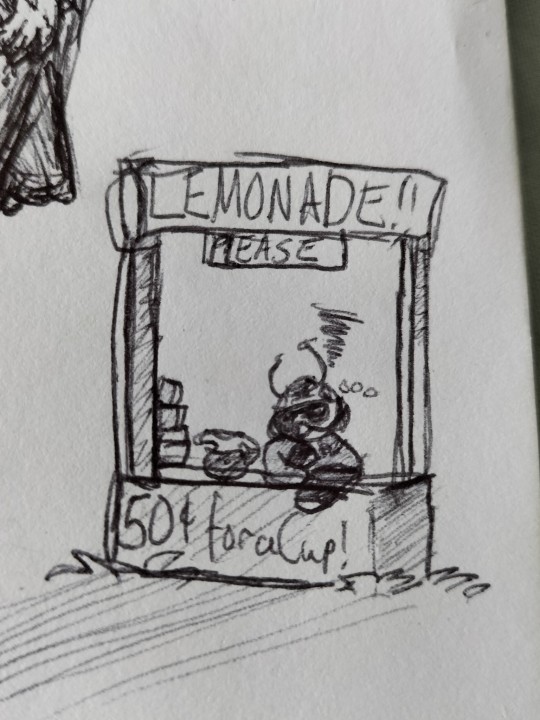 LEMONADE!!
PLEASE
50¢ for a Cup!